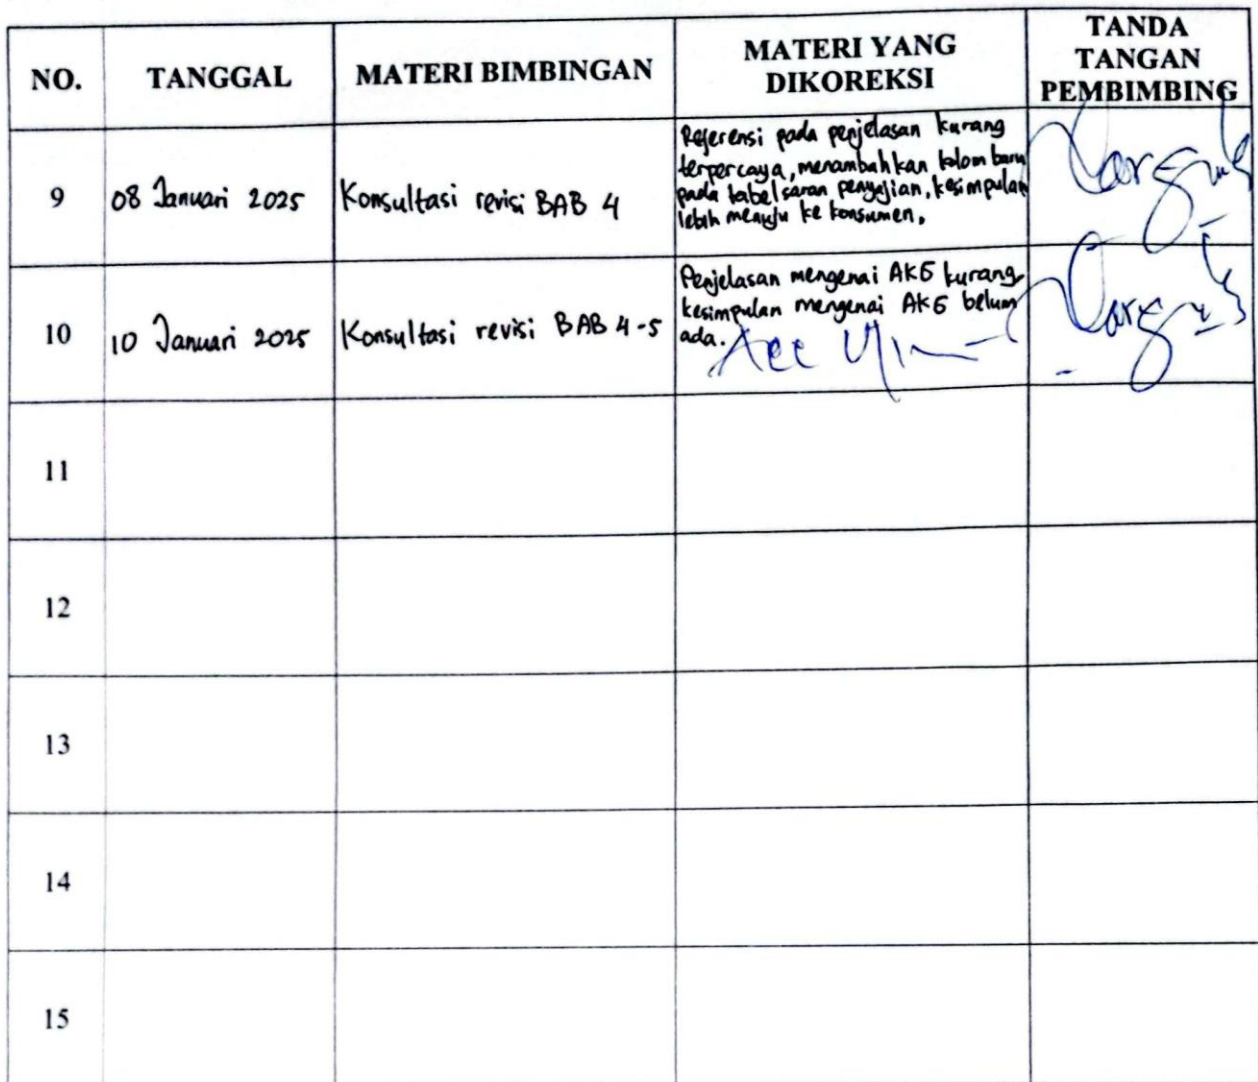 NO.
TANGGAL
MATERI BIMBINGAN
MATERI YANG
DIKOREKSI
TANDA
TANGAN
PEMBIMBING
9
08 Januari 2025
Konsultasi revisi BAB 4
Referensi pada penjelasan kurang
terpercaya, menambahkan kolom baru
pada tabel saran penyajian, kesimpulan
lebih menuju ke konsumen.
10
10 Januari 2025
Konsultasi revisi BAB 4-5
Penjelasan mengenai AKG kurang
kesimpulan mengenai AKG belum
ada.
Acc
11
12
13
14
15